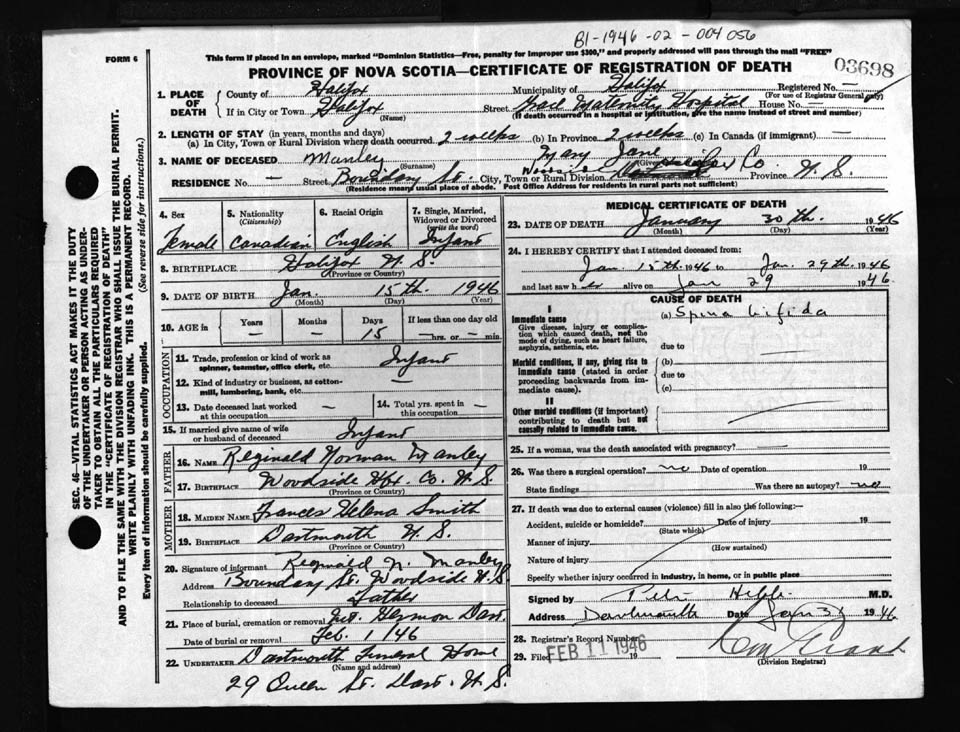 BI-1946-02-004056
FORM 6
This form if placed in an envelope, marked "Dominion Statistics—Free, penalty for improper use $300," and properly addressed will pass through the mail "FREE"
PROVINCE OF NOVA SCOTIA—CERTIFICATE OF REGISTRATION OF DEATH
03698
1. PLACE OF DEATH
County of Halifax Municipality of Halifax Registered No. —
(For use of Registrar General only)
If in City or Town Halifax Street Grace Maternity Hospital House No. —
(Name) (If death occurred in a hospital or institution, give the name instead of street and number)
2. LENGTH OF STAY (in years, months and days)
(a) In City, Town or Rural Division where death occurred. 2 weeks (b) In Province 2 weeks (c) In Canada (if immigrant) —
3. NAME OF DECEASED Manley Mary Jane
(Surname)
RESIDENCE No. — Street Boundary St. City, Town or Rural Division Co. Province N.S.
(Residence means usual place of abode. Post Office Address for residents in rural parts not sufficient)
4. Sex 5. Nationality (Citizenship) 6. Racial Origin 7. Single, Married, Widowed or Divorced (write the word)
Female Canadian English Infant
8. BIRTHPLACE Halifax N.S.
(Province or Country)
9. DATE OF BIRTH Jan. 15th. 1946
(Month) (Day) (Year)
10. AGE in Years Months Days If less than one day old
— — 15 — hrs. or — min.
OCCUPATION
11. Trade, profession or kind of work as spinner, teamster, office clerk, etc. Infant
12. Kind of industry or business, as cotton-mill, lumbering, bank, etc. —
13. Date deceased last worked at this occupation —
14. Total yrs. spent in this occupation —
15. If married give name of wife or husband of deceased Infant
FATHER
16. NAME Reginald Norman Manley
17. BIRTHPLACE Woodside Hfx. Co. N.S.
(Province or Country)
MOTHER
18. MAIDEN NAME Frances Helena Smith
19. BIRTHPLACE Dartmouth N.S.
(Province or Country)
20. Signature of informant Reginald N. Manley
Address Boundary St. Woodside N.S.
Relationship to deceased Father
21. Place of burial, cremation or removal Mt. Hermon Dart.
Date of burial or removal Feb. 1/46
22. UNDERTAKER Dartmouth Funeral Home
(Name and address)
29 Queen St. Dart. N.S.
MEDICAL CERTIFICATE OF DEATH
23. DATE OF DEATH January 30th. 1946
(Month) (Day) (Year)
24. I HEREBY CERTIFY that I attended deceased from:
Jan. 15th 1946 to Jan. 29th 1946
and last saw her alive on Jan 29 1946.
CAUSE OF DEATH
I
Immediate cause
Give disease, injury or complication which caused death, not the mode of dying, such as heart failure, asphyxia, asthenia, etc.
(a) Spina bifida
due to
Morbid conditions, if any, giving rise to immediate cause (stated in order proceeding backwards from immediate cause).
(b)
due to
(c)
II
Other morbid conditions (if important) contributing to death but not causally related to immediate cause.
25. If a woman, was the death associated with pregnancy? —
26. Was there a surgical operation? no Date of operation 19
State findings Was there an autopsy? no
27. If death was due to external causes (violence) fill in also the following:—
Accident, suicide or homicide? Date of injury 19
(State which)
Manner of injury
(How sustained)
Nature of injury
Specify whether injury occurred in industry, in home, or in public place
Signed by M.D.
Address Dartmouth Date Jan 31 1946
28. Registrar's Record Number
29. Filed FEB 11 1946 19
(Division Registrar)
SEC. 46—VITAL STATISTICS ACT MAKES IT THE DUTY OF THE UNDERTAKER OR PERSON ACTING AS UNDERTAKER TO OBTAIN ALL THE PARTICULARS REQUIRED IN THE "CERTIFICATE OF REGISTRATION OF DEATH"
AND TO FILE THE SAME WITH THE DIVISION REGISTRAR WHO SHALL ISSUE THE BURIAL PERMIT.
WRITE PLAINLY WITH UNFADING INK. THIS IS A PERMANENT RECORD.
Every item of information should be carefully supplied. (See reverse side for instructions.)